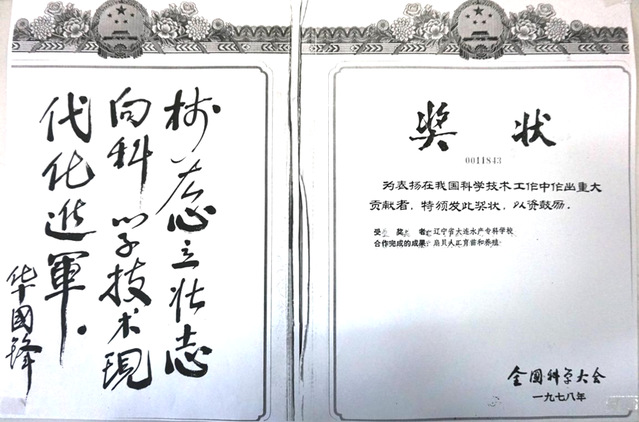 树雄心立壮志
向科学技术现
代化进军。
华国锋
奖状
0011843
为表扬在我国科学技术工作中作出重大
贡献者，特颁发此奖状，以资鼓励。
受奖者：辽宁省大连水产专科学校
合作完成的成果：扇贝人工育苗和养殖
全国科学大会
一九七八年